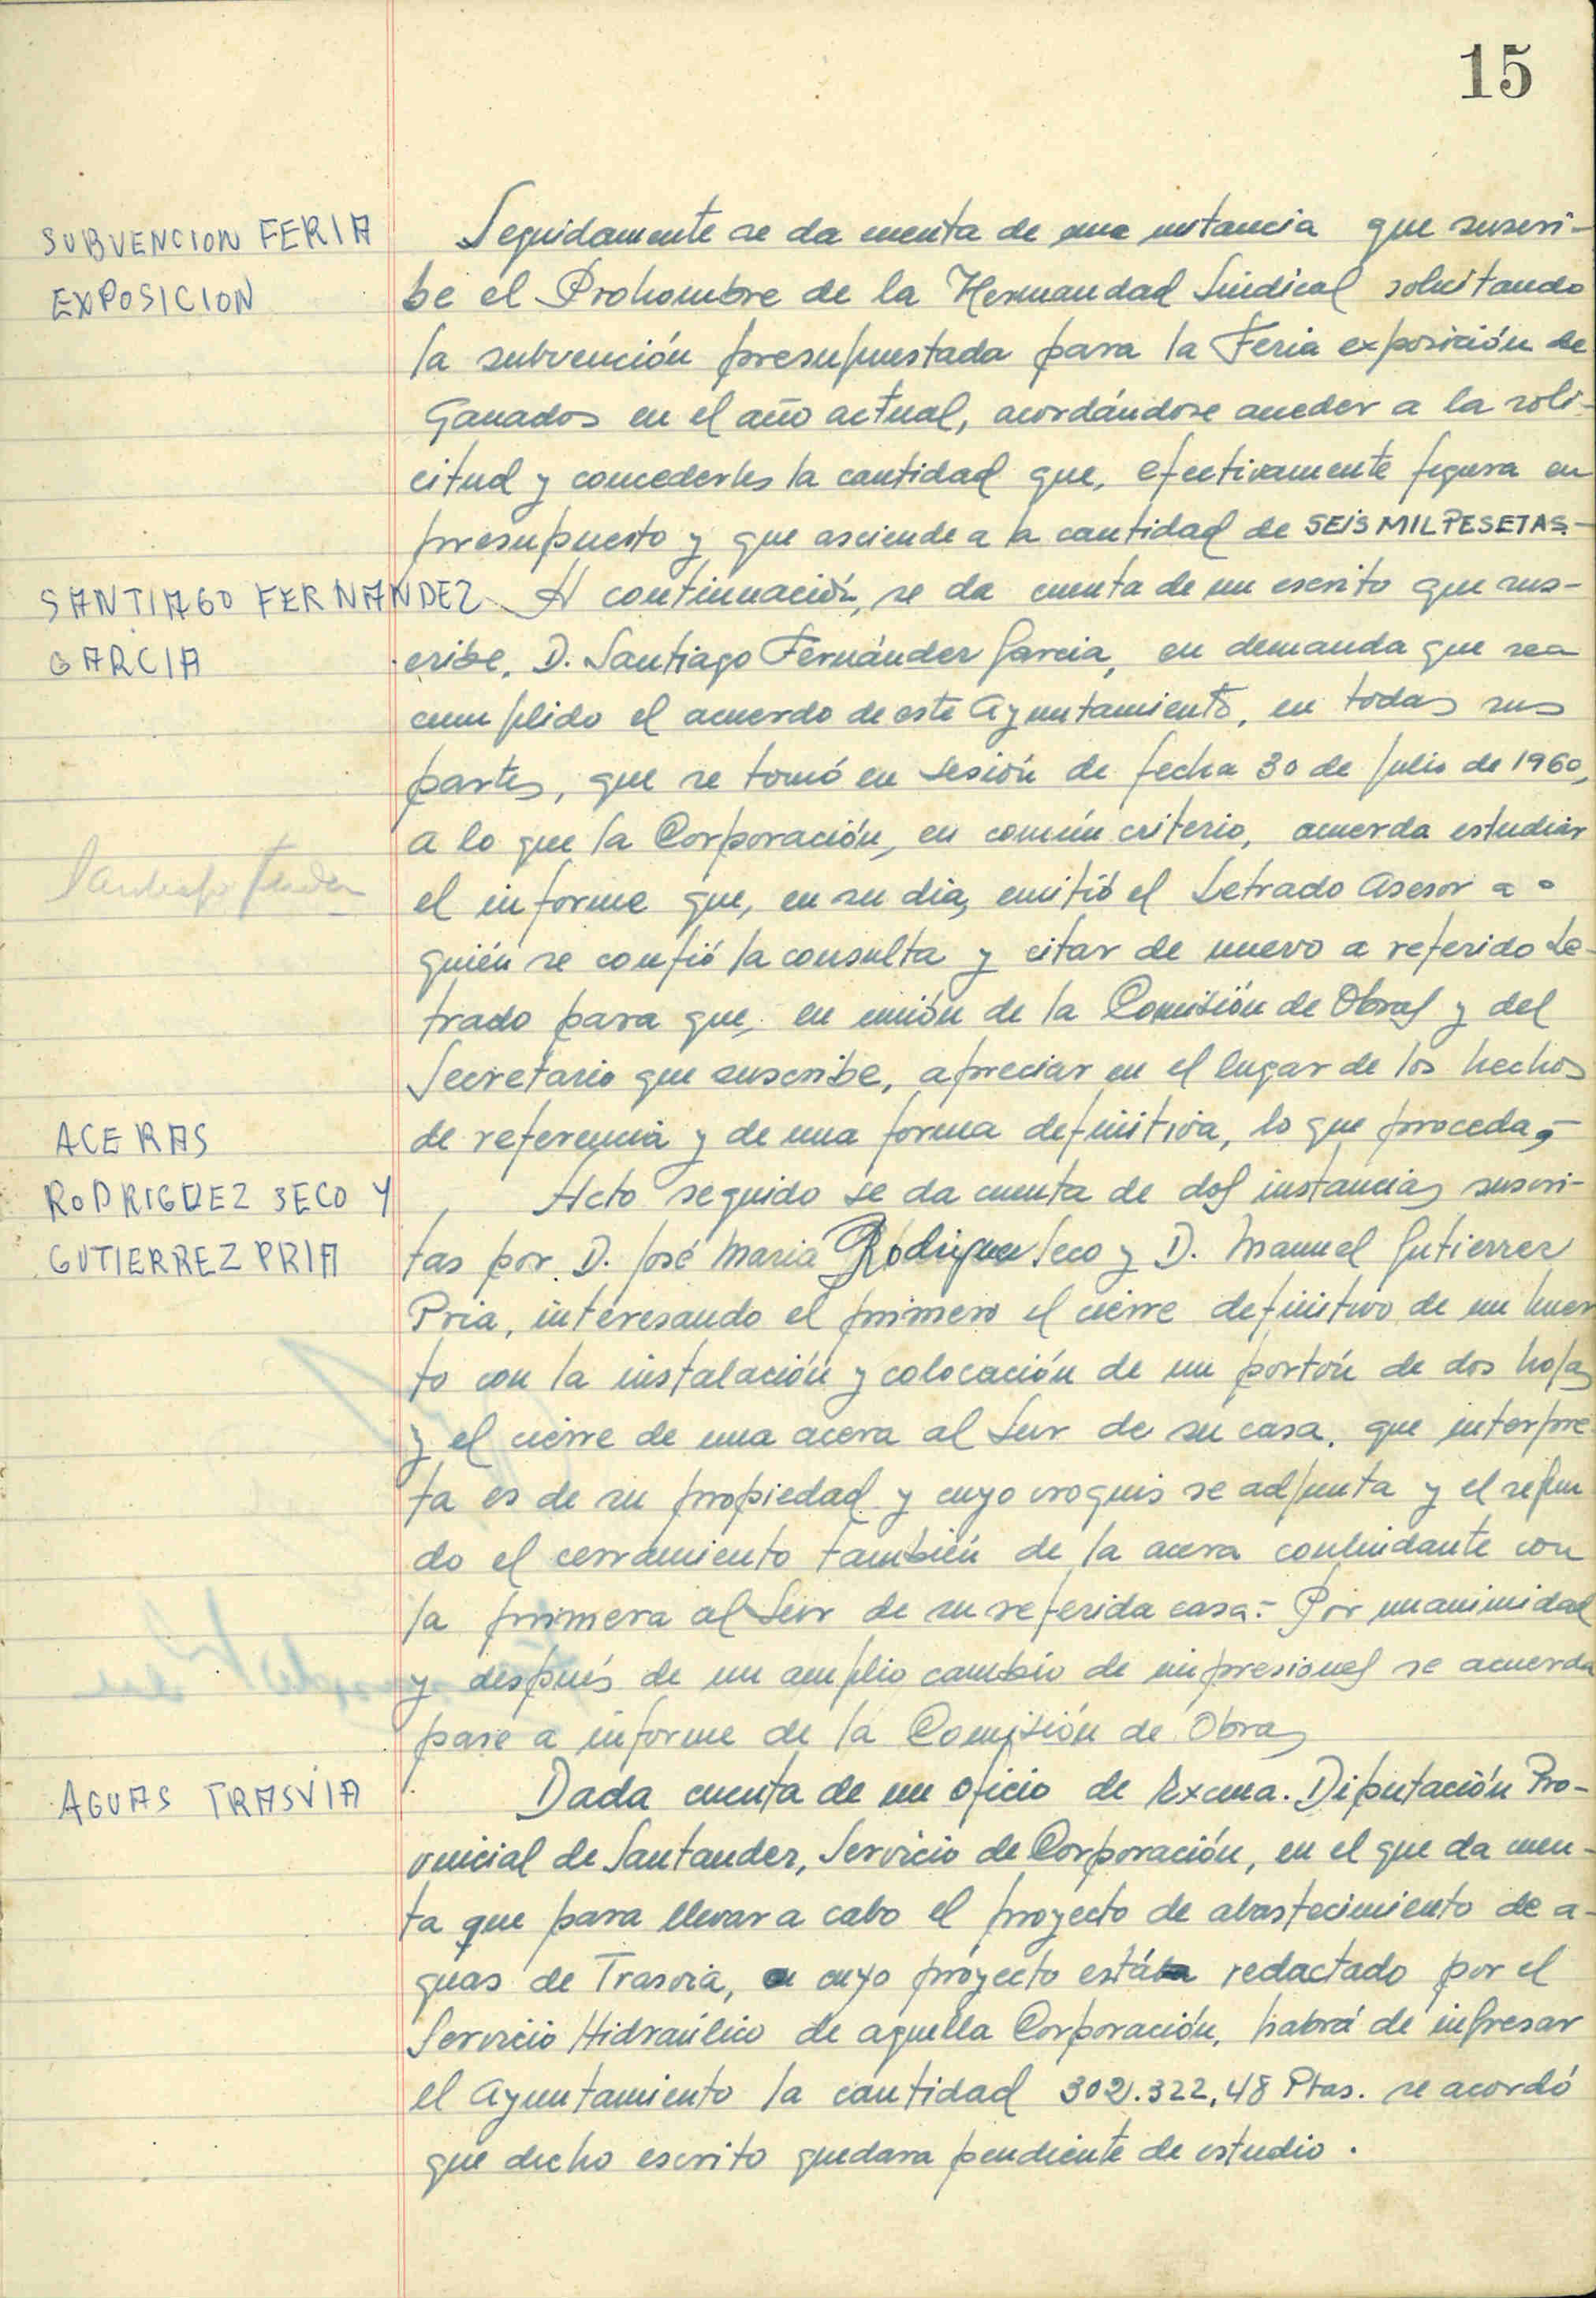 15
SUBVENCION FERIA
EXPOSICION
Seguidamente se da cuenta de una instancia que suscri-
be el Prohombre de la Hermandad Sindical solicitando
la subvención presupuestada para la Feria exposición de
Ganados en el año actual, acordándose acceder a la soli-
citud y concederles la cantidad que, efectivamente figura en
presupuesto y que asciende a la cantidad de SEIS MIL PESETAS.-
SANTIAGO FERNANDEZ
GARCIA
A continuación, se da cuenta de un escrito que sus-
cribe, D. Santiago Fernández García, en demanda que sea
cumplido el acuerdo de este Ayuntamiento, en todas sus
partes, que se tomó en sesión de fecha 30 de Julio de 1960,
a lo que la Corporación, en común criterio, acuerda estudiar
el informe que, en su día, emitió el Letrado Asesor a
quién se confió la consulta y citar de nuevo a referido Le-
trado para que, en unión de la Comisión de Obras y del
Secretario que suscribe, apreciar en el lugar de los hechos
de referencia y de una forma definitiva, lo que proceda,-
ACERAS
RODRIGUEZ SECO Y
GUTIERREZ PRIA
Acto seguido se da cuenta de dos instancias suscri-
tas por D. José Maria Rodriguez Seco y D. Manuel Gutierrez
Pria, interesando el primero el cierre definitivo de un huer
to con la instalación y colocación de un portón de dos hojas
y el cierre de una acera al Sur de su casa, que interpre
ta es de su propiedad y cuyo croquis se adjunta y el segun
do el cerramiento también de la acera conlindante con
la primera al Sur de su referida casa.- Por unanimidad
y después de un amplio cambio de impresiones se acuerda
pase a informe de la Comisión de Obras
AGUAS TRASVIA
Dada cuenta de un oficio de Excma. Diputación Pro-
vincial de Santander, Servicio de Corporación, en el que da cuen-
ta que para llevar a cabo el proyecto de abastecimiento de a-
guas de Trasvia, cuyo proyecto está redactado por el
Servicio Hidraúlico de aquella Corporación, habrá de ingresar
el Ayuntamiento la cantidad 302.322,48 Ptas. se acordó
que dicho escrito quedara pendiente de estudio.